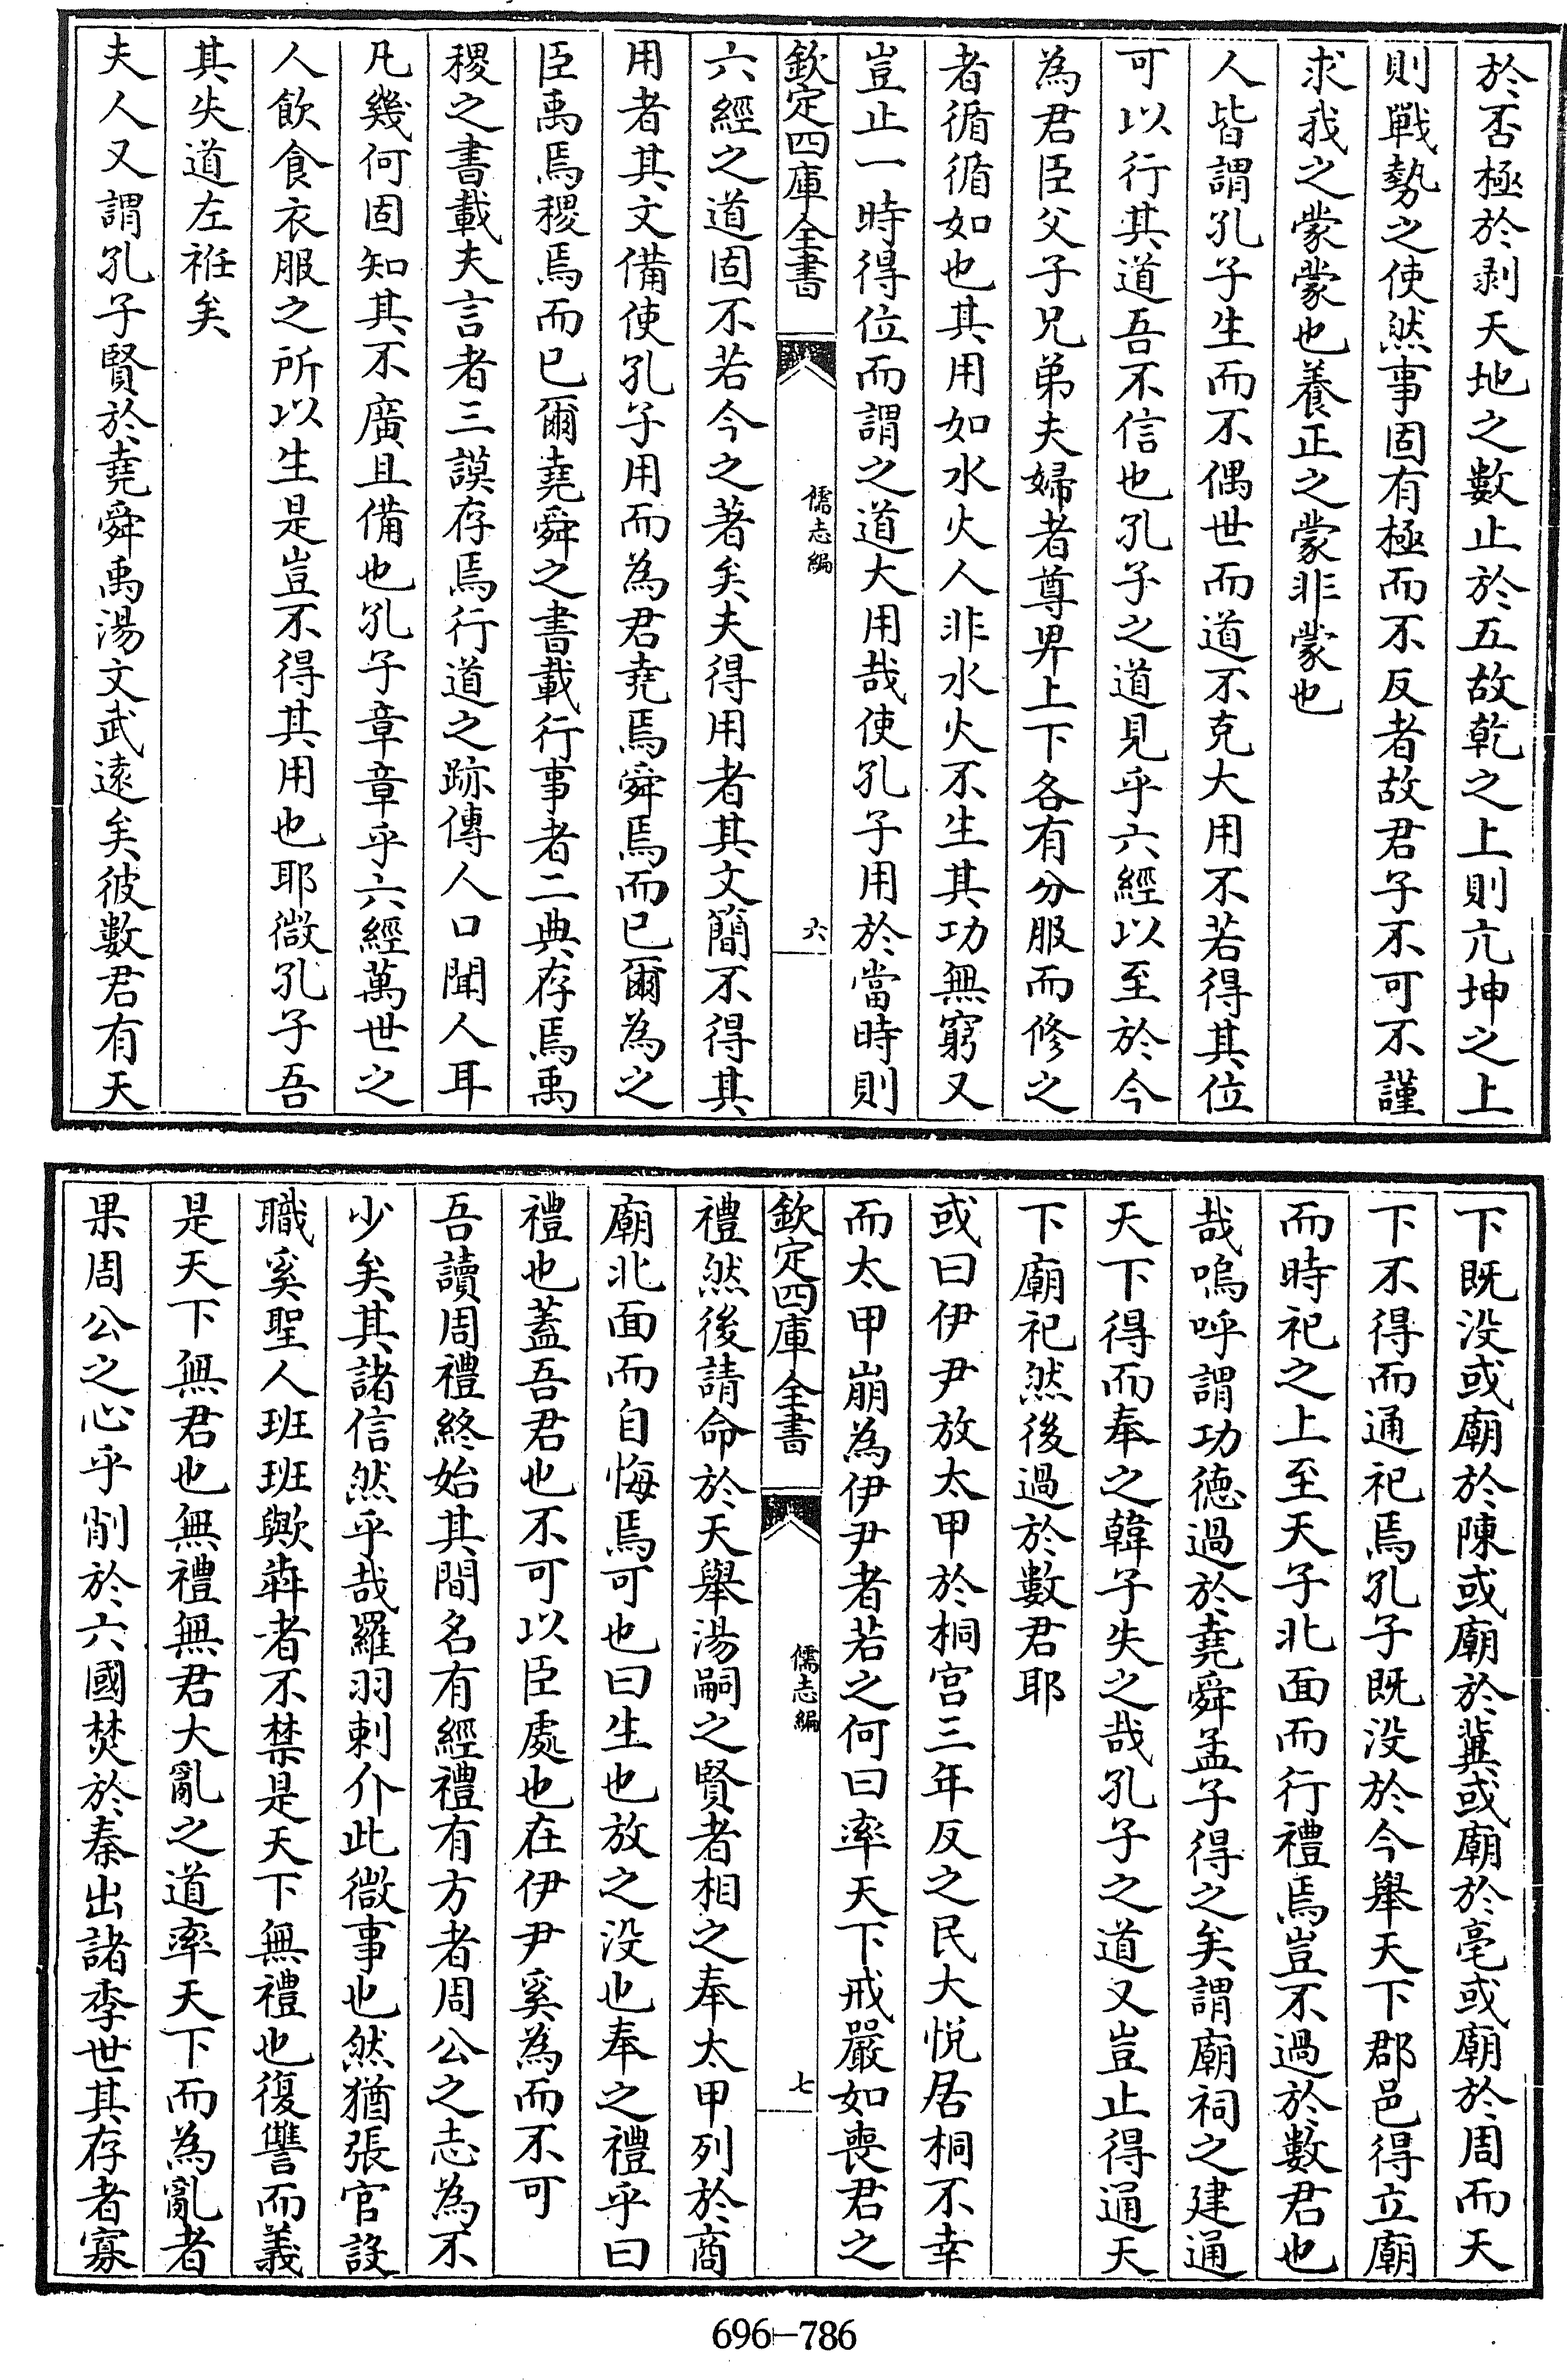 於否極於剥天地之數止於五故乾之上則亢坤之上
則戰勢之使然事固有極而不反者故君子不可不謹
求我之蒙蒙也養正之蒙非蒙也
人皆謂孔子生而不偶世而道不克大用不若得其位
可以行其道吾不信也孔子之道見乎六經以至於今
為君臣父子兄弟夫婦者尊卑上下各有分服而修之
者循循如也其用如水火人非水火不生其功無窮又
豈止一時得位而謂之道大用哉使孔子用於當時則
欽定四庫全書
儒志編
六
六經之道固不若今之著矣夫得用者其文簡不得其
用者其文備使孔子用而為君堯焉舜焉而已爾為之
臣禹焉稷焉而已爾堯舜之書載行事者二典存焉禹
稷之書載夫言者三謨存焉行道之跡傳人口聞人耳
凡幾何固知其不廣且備也孔子章章乎六經萬世之
人飲食衣服之所以生是豈不得其用也耶微孔子吾
其失道左袵矣
夫人又謂孔子賢於堯舜禹湯文武遠矣彼數君有天
下既没或廟於陳或廟於冀或廟於亳或廟於周而天
下不得而通祀焉孔子既没於今舉天下郡邑得立廟
而時祀之上至天子北面而行禮焉豈不過於數君也
哉嗚呼謂功德過於堯舜孟子得之矣謂廟祠之建通
天下得而奉之韓子失之哉孔子之道又豈止得通天
下廟祀然後過於數君耶
或曰伊尹放太甲於桐宫三年反之民大悦居桐不幸
而太甲崩為伊尹者若之何曰率天下戒嚴如喪君之
欽定四庫全書
儒志編
七
禮然後請命於天舉湯嗣之賢者相之奉太甲列於商
廟北面而自悔焉可也曰生也放之没也奉之禮乎曰
禮也蓋吾君也不可以臣處也在伊尹奚為而不可
吾讀周禮終始其間名有經禮有方者周公之志為不
少矣其諸信然乎哉羅羽刺介此微事也然猶張官設
職奚聖人班班歟犇者不禁是天下無禮也復讐而義
是天下無君也無禮無君大亂之道率天下而為亂者
果周公之心乎削於六國焚於秦出諸季世其存者寡
696-786